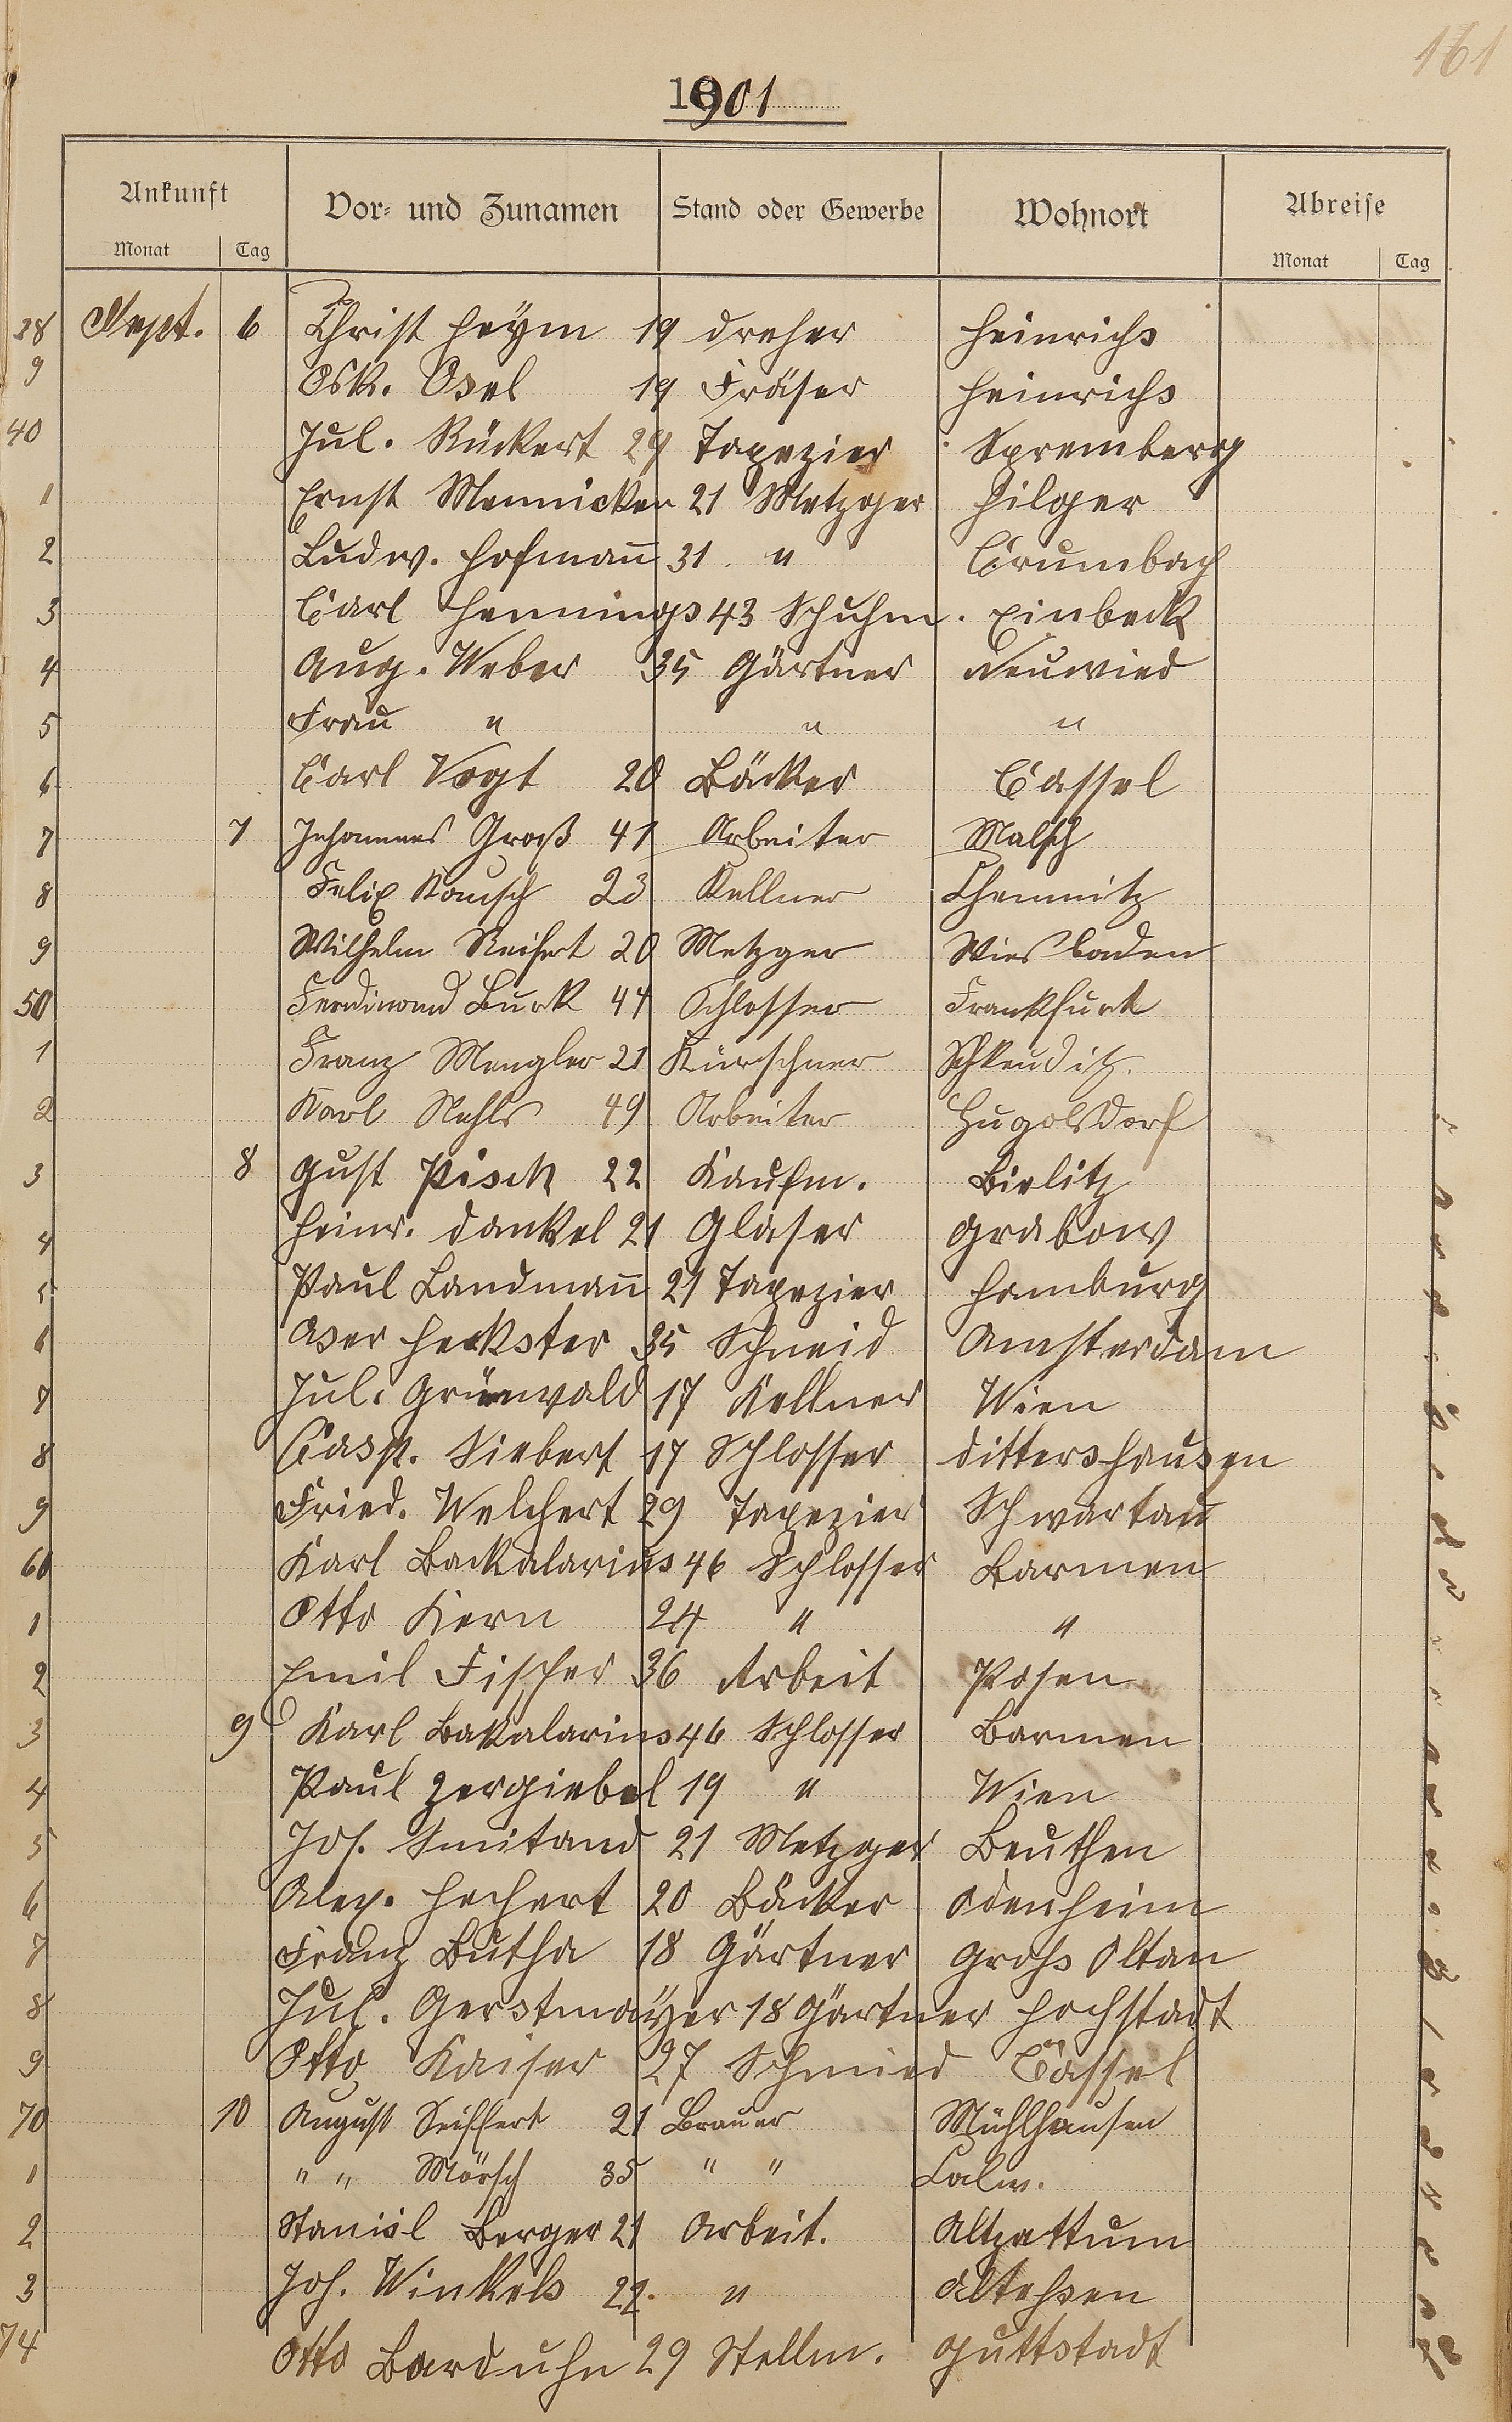 161
1901
Ankunft Vor- und Zunamen Stand oder Gewerbe Wohnort Abreise
Monat Tag Monat Tag
38 Sept. 6 Christ Heym 19 Dreher Heinrichs
9 Osk. Osel 19 Fräser Heinrichs
40 Jul. Rückert 29 Tapezier Spremberg
1 Ernst Mennicken 21 Metzger Hilger
2 Ludw. Hofmann 31 " Crumbach
3 Carl Hennings 43 Schuhm. Einbeck
4 Aug. Weber 35 Gärtner Neuwied
5 Frau " " "
6 Carl Vogt 20 Bäcker Cassel
7 7 Johannes Groß 41 Arbeiter Malsch
8 Felix Rausch 23 Kellner Chemnitz
9 Wilhelm Reifert 20 Metzger Wiesbaden
50 Ferdinand Burk 44 Schlosser Frankfurt
1 Franz Mengler 21 Kürschner Schkeuditz.
2 Karl Nehls 49 Arbeiter Hugolsdorf
3 8 Gust Pisch 22 Kaufm. Bielitz
4 Heinr. Dankel 21 Glaser Grabow
5 Paul Landmann 21 Tapezier Hamburg
6 Aser Heckster 35 Schneid Amsterdam
7 Jul. Grünwald 17 Kellner Wien
8 Casp. Siebert 17 Schlosser Dittershausen
9 Fried. Welchert 29 Tapezier Schwartau
60 Karl Backalarius 46 Schlosser Barmen
1 Otto Kern 24 " "
2 Emil Fischer 36 Arbeit Posen
3 9 Karl Bakalarius 46 Schlosser Barmen
4 Paul Zergiebel 19 " Wien
5 Jos. Smitand 21 Metzger Beuthen
6 Alex. Hechert 20 Bäcker Odenheim
7 Franz Butha 18 Gärtner Groß Oltan
8 Jul. Gerstmayer 18 Gärtner Hochstadt
9 Otto Kaiser 27 Schmied Cassel
70 10 August Seiffert 21 Brauer Mühlhausen
1 " " Mörsch 35 " " Calw.
2 Stanisl Berger 21 Arbeit. Altzattum
3 Joh. Winkels 22. " Altessen
74 Otto Barduhn 29 Stellm. Guttstadt